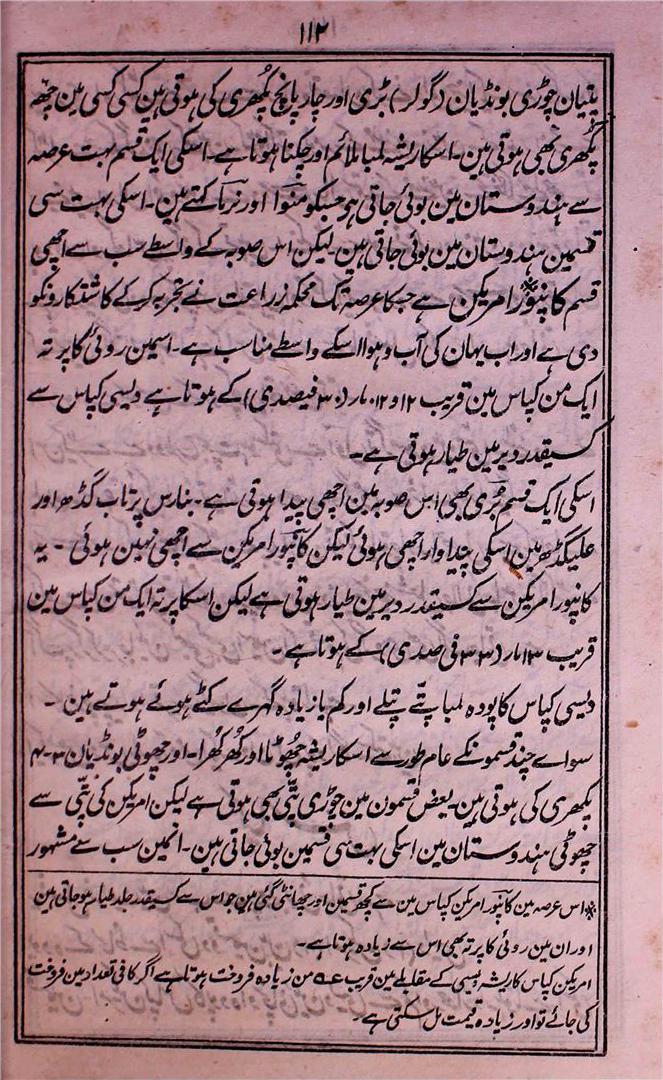 ۱۱۲
پتیان چوڑی بونڈیان (گولر) بڑی اور چار پانچ پکھڑی کی ہوتی ہین کسی کسی مین چھ
پکھڑی بھی ہوتی ہین۔ اسکا ریشہ لمبا ملائم اور چکنا ہوتا ہے۔ اسکی ایک قسم بہت عرصہ
سے ہندوستان مین بوئی جاتی ہو جسکو منوا اور نرما کہتے ہین۔ اسکی بہت سی
قسمین ہندوستان مین بوئی جاتی ہین۔ لیکن اس صوبہ کے واسطے سب سے اچھی
قسم کانپور* امریکن ہے جسکا عرصہ تک محکمہ زراعت نے تجربہ کر کے کاشتکارونکو
دی ہے اور اب یہان کی آب و ہوا اسکے واسطے مناسب ہے۔ اسمین روئی کا پرتہ
ایک من کپاس مین قریب ۱۲ و ۱۲۰ مار (۳۰ فیصدی) کے ہوتا ہے دیسی کپاس سے
کسیقدر دیر مین طیار ہوتی ہے۔
اسکی ایک قسم بُری بھی اس صوبہ مین اچھی پیدا ہوتی ہے۔ بنارس پرتاب گڈھ اور
علیگڈھ مین اسکی پیداوار اچھی ہوئی لیکن کانپور امریکن سے اچھی نہین ہوئی ۔ یہ
کانپور امریکن سے کسیقدر دیر مین طیار ہوتی ہے لیکن اسکا پرتہ ایک من کپاس مین
قریب ۱۳ مار (۳۳ فی صدی) کے ہوتا ہے۔
دیسی کپاس کا پودہ لمبا پتّے پتلے اور کم یا زیادہ گہرے کٹے ہوئے ہوتے ہین ۔
سواے چند قسمونکے عام طور سے اسکا ریشہ چھوٹا اور کھُرکھُرا۔ اور چھوٹی بونڈیان ۳-۴
پکھڑی کی ہوتی ہین۔ بعض قسمون مین چوڑی پتّی بھی ہوتی ہے لیکن امریکن کی پتّی سے
چھوٹی ہندوستان مین اسکی بہت سی قسمین بوئی جاتی ہین۔ انمین سب سے مشہور
* اس عرصہ مین کانپور امریکن کپاس مین سے کچھ قسمین اور چھانٹی گئی ہین جو اس سے کسیقدر جلد طیار ہو جاتی ہین
اور ان مین روئی کا پرتہ بھی اس سے زیادہ ہوتا ہے۔
امریکن کپاس کا ریشہ دیسی کے مقابلے مین قریب من زیادہ فروخت ہوتا ہے اگر کافی تعداد مین فروخت
کی جائے تو اور زیادہ قیمت مل سکتی ہے۔